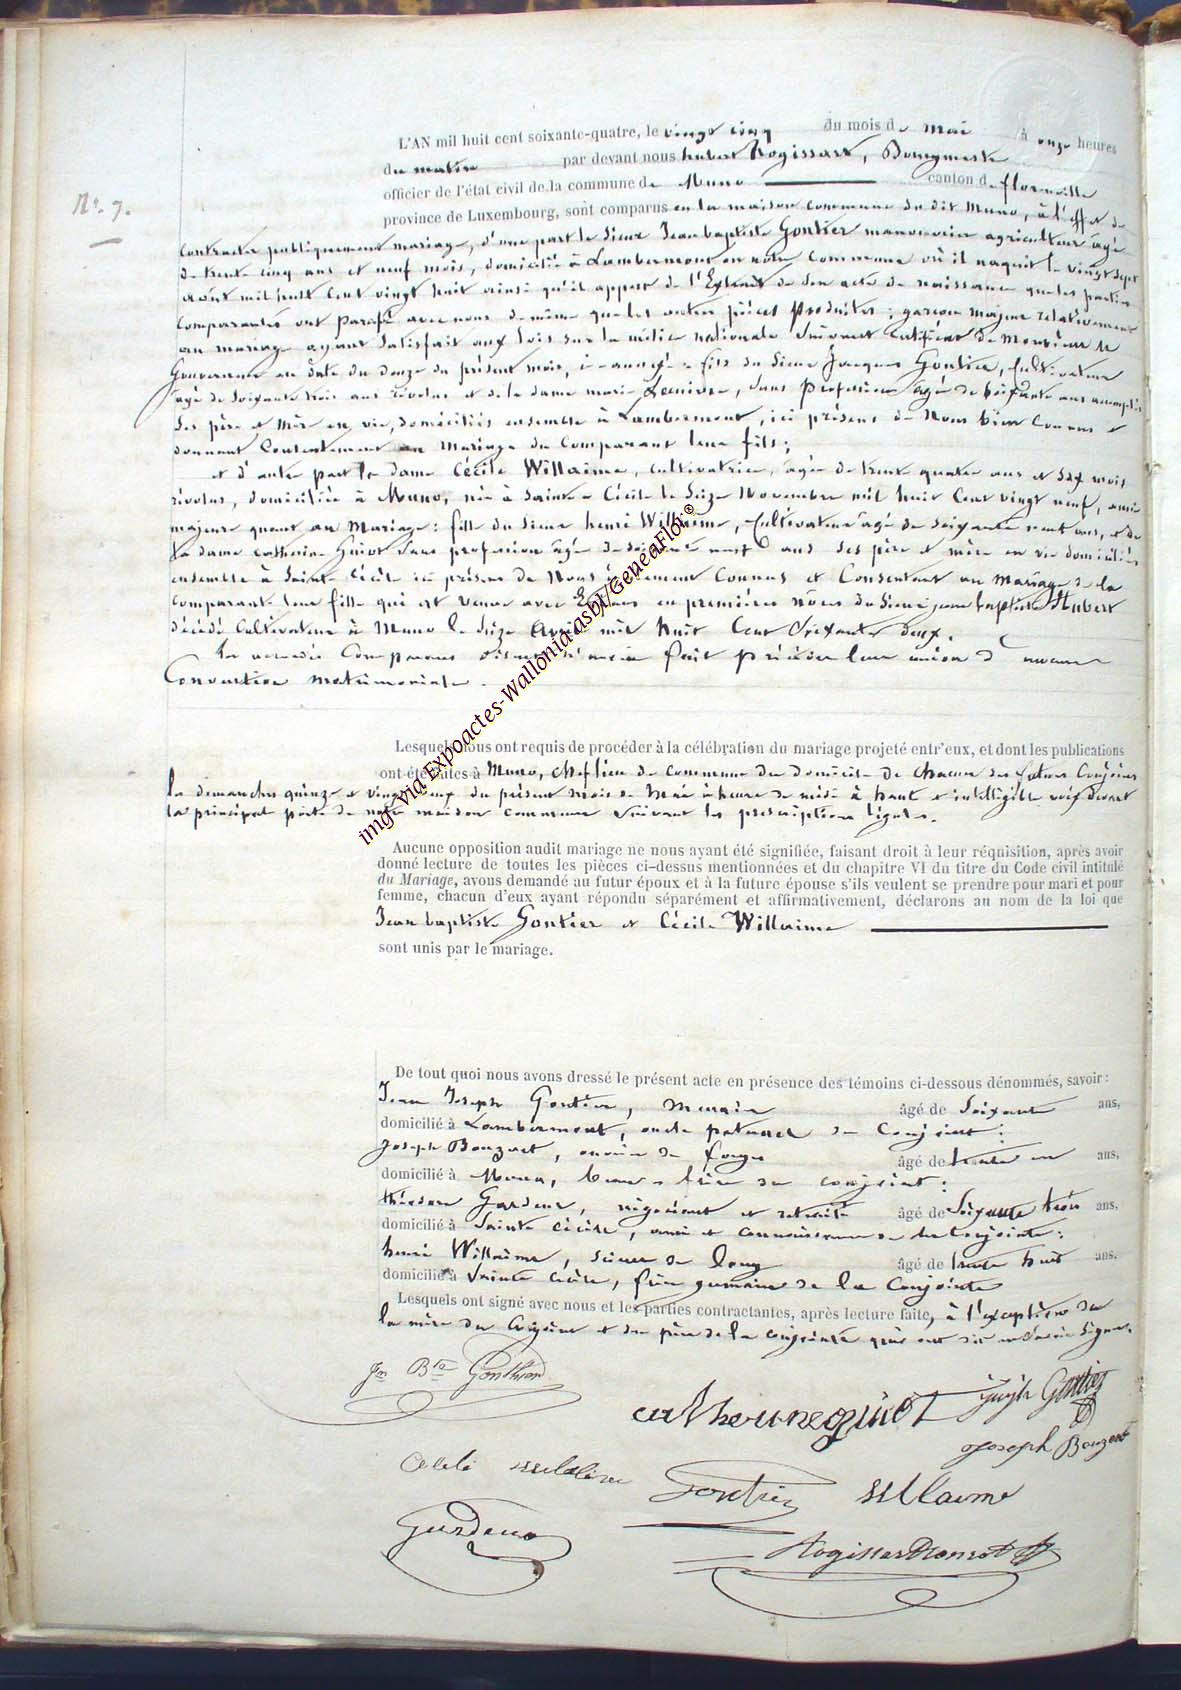 N°. 7.
L'AN mil huit cent soixante-quatre, le vingt cinq du mois de mai à onze heures
du matin par devant nous hubert Rogissart, Bourgmestre
officier de l'état civil de la commune de Muno canton de florenville
province de Luxembourg, sont comparus en la maison commune du dit Muno, à l'effet de
contracter publiquement mariage, d'une part le Sieur Jean baptiste Gontier manouvrier agriculteur âgé
de trente cinq ans et neuf mois, domicilié à Lambermont en notre commune où il naquit le vingt sept
août mil huit cent vingt huit ainsi qu'il appert de l'Extrait de son acte de naissance que les parties
comparantes ont parafé avec nous de même que les autres pièces produites ; garçon majeur relativement
au mariage ayant satisfait aux lois sur la milice nationale suivant certificat de Monsieur le
Gouverneur en date du douze du présent mois, fils du Sieur Jacques Gontier, Cultivateur
âgé de soixante trois ans révolus et de la dame marie, sans profession âgée de soixante ans accomplis
ses père et mère en vie, domiciliés ensemble à Lambermont, ici présens de nous bien connus et
donnant consentement au mariage du comparant leur fils ;
et d'autre part la dame Cécile Willaime, cultivatrice, âgée de trente quatre ans et six mois
révolus, domiciliée à Muno, née à Sainte Cécile le seize Novembre mil huit cent vingt neuf, aussi
majeure quant au mariage : fille du Sieur henri Willaime, Cultivateur âgé de soixante ans, et de
la dame catherine Guiot sans profession âgée de soixante neuf ans ses père et mère en vie domiciliés
ensemble à Sainte Cécile ici présens de nous également connus et consentant au mariage de la
comparante leur fille qui est veuve avec Enfans en premières nôces du Sieur jean baptiste Hubert
décédé cultivateur à Muno le seize Avril mil huit cent soixante deux.
Les comparans disent n'avoir fait précéder leur union d'aucune
Convention matrimoniale.
Lesquels nous ont requis de procéder à la célébration du mariage projeté entr'eux, et dont les publications
ont été faites à Muno, chef lieu de commune du domicile de chacun des futurs Conjoints
les dimanches quinze et vingt deux du présent mois de Mai à heure de midi à haute et intelligible voix devant
la principale porte de notre maison commune suivant les prescriptions légales.
Aucune opposition audit mariage ne nous ayant été signifiée, faisant droit à leur réquisition, après avoir
donné lecture de toutes les pièces ci-dessus mentionnées et du chapitre VI du titre du Code civil intitulé
du Mariage, avons demandé au futur époux et à la future épouse s'ils veulent se prendre pour mari et pour
femme, chacun d'eux ayant répondu séparément et affirmativement, déclarons au nom de la loi que
Jean baptiste Gontier et Cécile Willaime
sont unis par le mariage.
De tout quoi nous avons dressé le présent acte en présence des témoins ci-dessous dénommés, savoir :
Jean Joseph Gontier, âgé de Soixante ans,
domicilié à Lambermont, oncle paternel du Conjoint ;
Joseph Bouzart, ouvrier de forges âgé de trente un ans,
domicilié à Muno, beau-frère du conjoint ;
théodore Gardeur, négociant et retraité âgé de Soixante trois ans,
domicilié à Sainte Cécile, ami et connaissance de la Conjointe ;
henri Willaime, scieur de long âgé de trente huit ans.
domicilié à Sainte Cécile, frère germain de la Conjointe
Lesquels ont signé avec nous et les parties contractantes, après lecture faite, à l'exception de
la mère du Conjoint et du père de la conjointe qui ont dit ne savoir signer.
Jn Bte Gonthier
catherineguiot
joseph Gontier
Joseph Bouzart
Cecile willaime
Gontier
willaime
Gardeur
Rogissart
img. via Expoactes-Wallonia asbl/GeneaFlor©